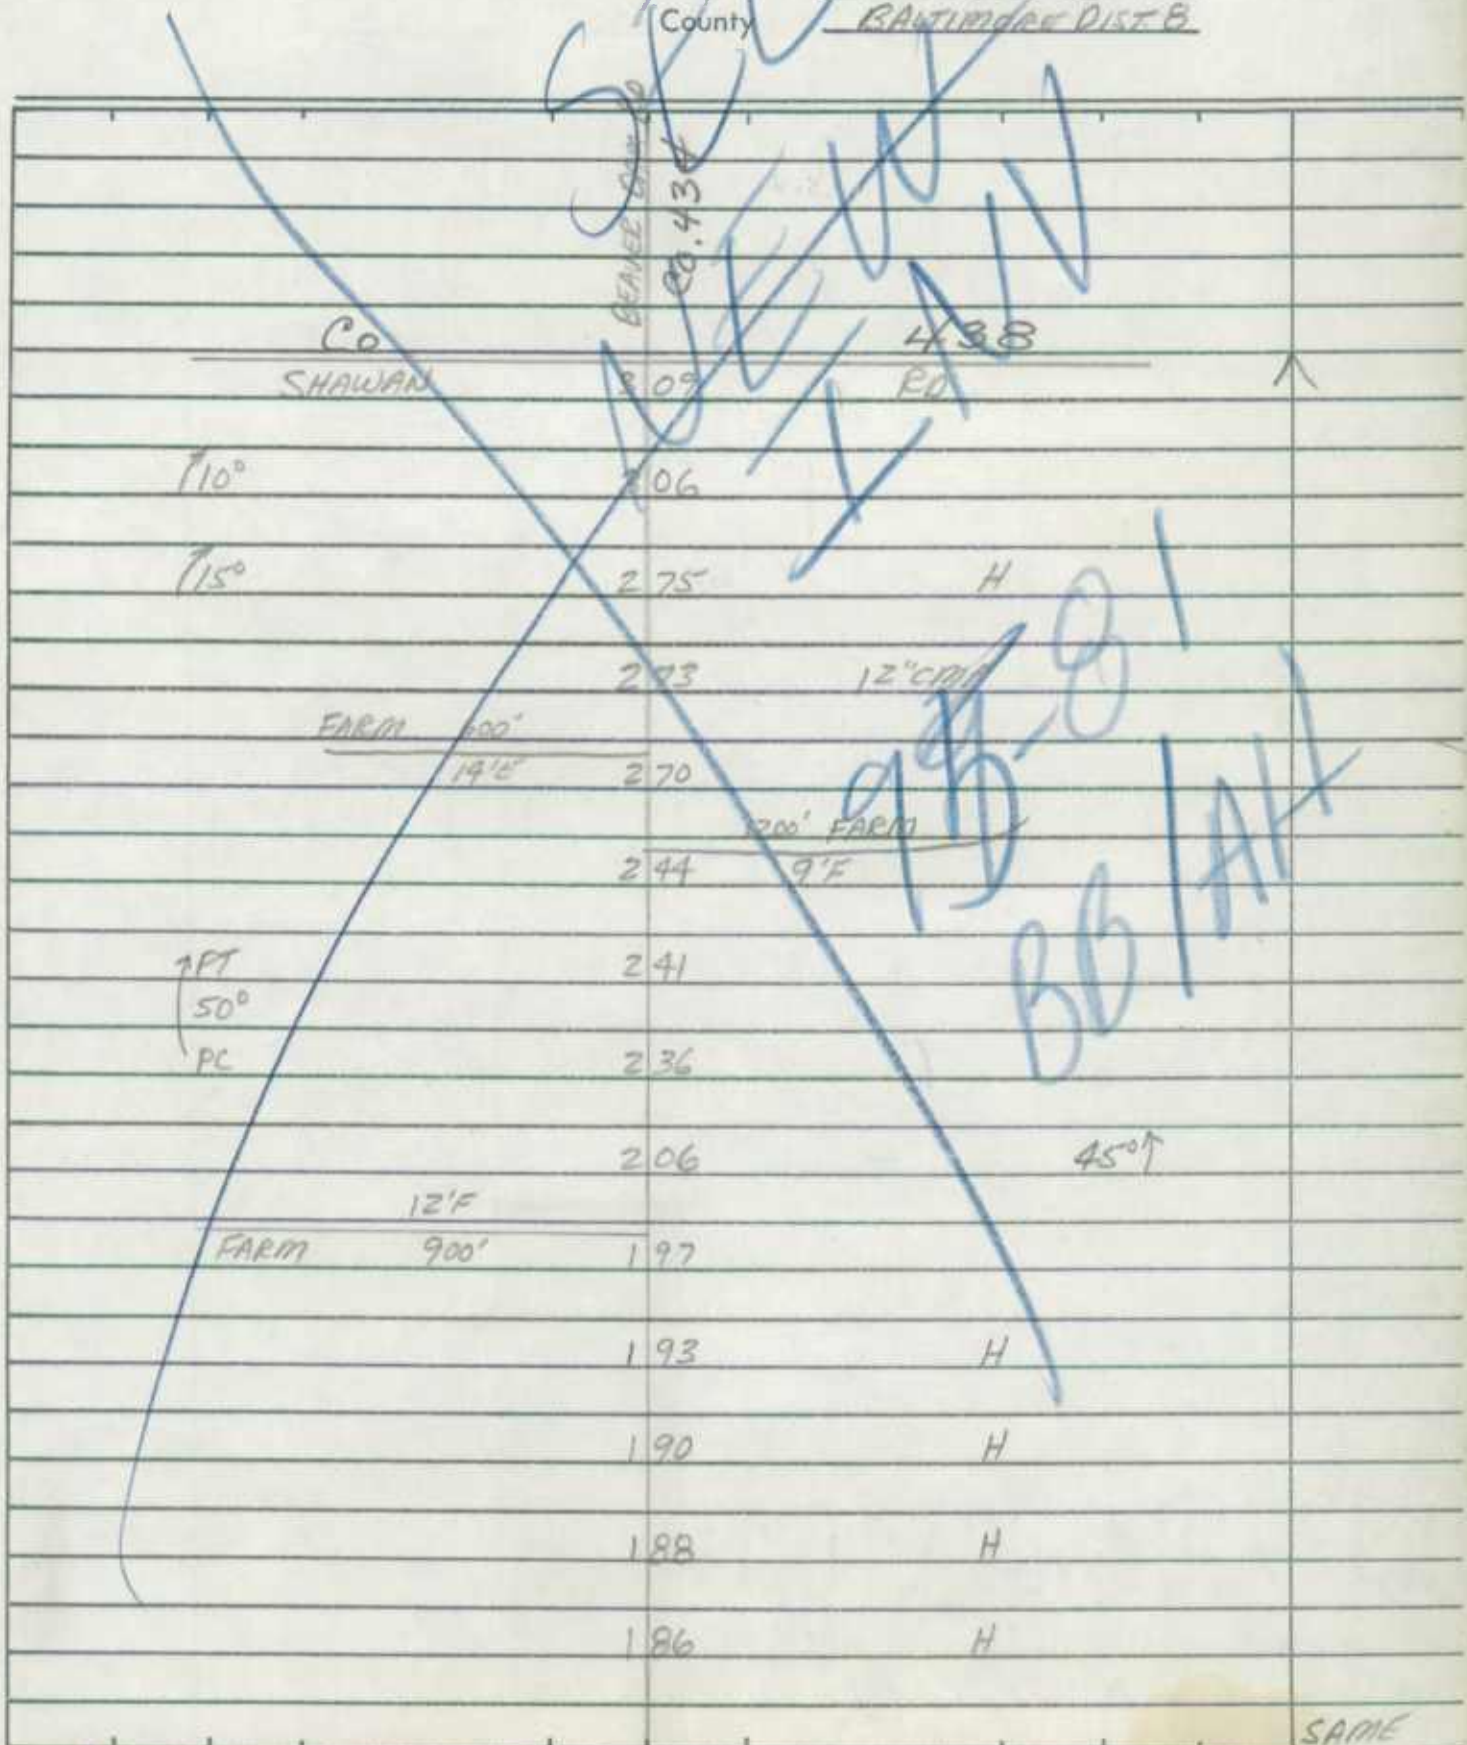 County BALTIMORE DIST. 8
SEE
NEW
INV
BEAVER DAM RD
Co. 434
Co 438
SHAWAN 3 09 RD
10° 3 06
15° 2 75 H
2 73 12" CMP
FARM 600'
14'E 2 70
1200' FARM
2 44 9'F
PT 2 41
50°
PC 2 36
2 06 45°
12'F
FARM 900' 1 97
1 93 H
1 90 H
1 88 H
1 86 H
SAME
BB/AH